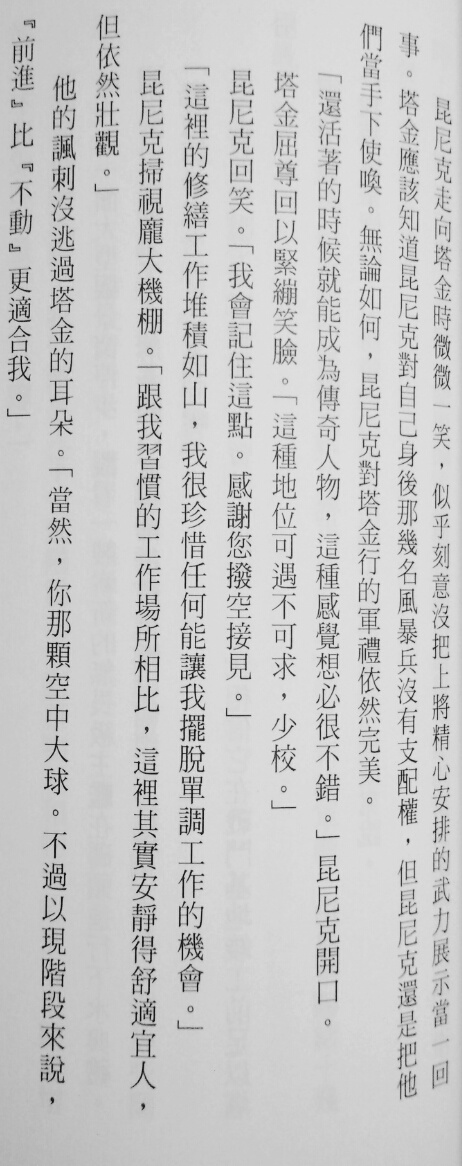 昆尼克走向塔金時微微一笑，似乎刻意沒把上將精心安排的武力展示當一回
事。塔金應該知道昆尼克對自己身後那幾名風暴兵沒有支配權，但昆尼克還是把他
們當手下使喚。無論如何，昆尼克對塔金行的軍禮依然完美。
「還活著的時候就能成為傳奇人物，這種感覺想必很不錯。」昆尼克開口。
塔金屈尊回以緊繃笑臉。「這種地位可遇不可求，少校。」
昆尼克回笑。「我會記住這點。感謝您撥空接見。」
「這裡的修繕工作堆積如山，我很珍惜任何能讓我擺脫單調工作的機會。」
昆尼克掃視龐大機棚。「跟我習慣的工作場所相比，這裡其實安靜得舒適宜人，
但依然壯觀。」
他的諷刺沒逃過塔金的耳朵。「當然，你那顆空中大球。不過以現階段來說，
『前進』比『不動』更適合我。」